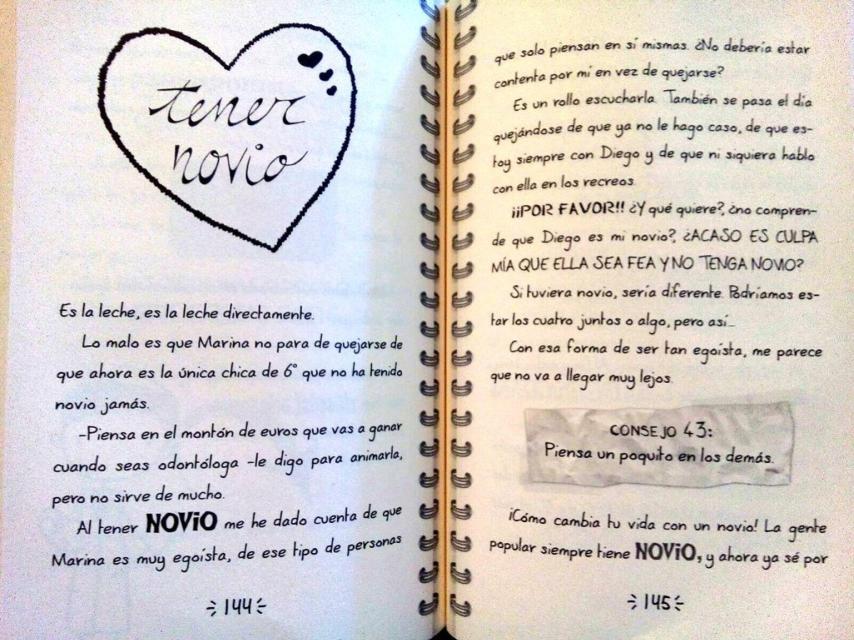 tener
novio
Es la leche, es la leche directamente.
Lo malo es que Marina no para de quejarse de
que ahora es la única chica de 6º que no ha tenido
novio jamás.
-Piensa en el montón de euros que vas a ganar
cuando seas odontóloga -le digo para animarla,
pero no sirve de mucho.
Al tener NOVIO me he dado cuenta de que
Marina es muy egoísta, de ese tipo de personas
144
que solo piensan en sí mismas. ¿No debería estar
contenta por mí en vez de quejarse?
Es un rollo escucharla. También se pasa el día
quejándose de que ya no le hago caso, de que es-
toy siempre con Diego y de que ni siquiera hablo
con ella en los recreos.
¡¡POR FAVOR!! ¿Y qué quiere?, ¿no compren-
de que Diego es mi novio?, ¿ACASO ES CULPA
MÍA QUE ELLA SEA FEA Y NO TENGA NOVIO?
Si tuviera novio, sería diferente. Podríamos es-
tar los cuatro juntos o algo, pero así...
Con esa forma de ser tan egoísta, me parece
que no va a llegar muy lejos.
CONSEJO 43:
Piensa un poquito en los demás.
¡Cómo cambia tu vida con un novio! La gente
popular siempre tiene NOVIO, y ahora ya sé por
145